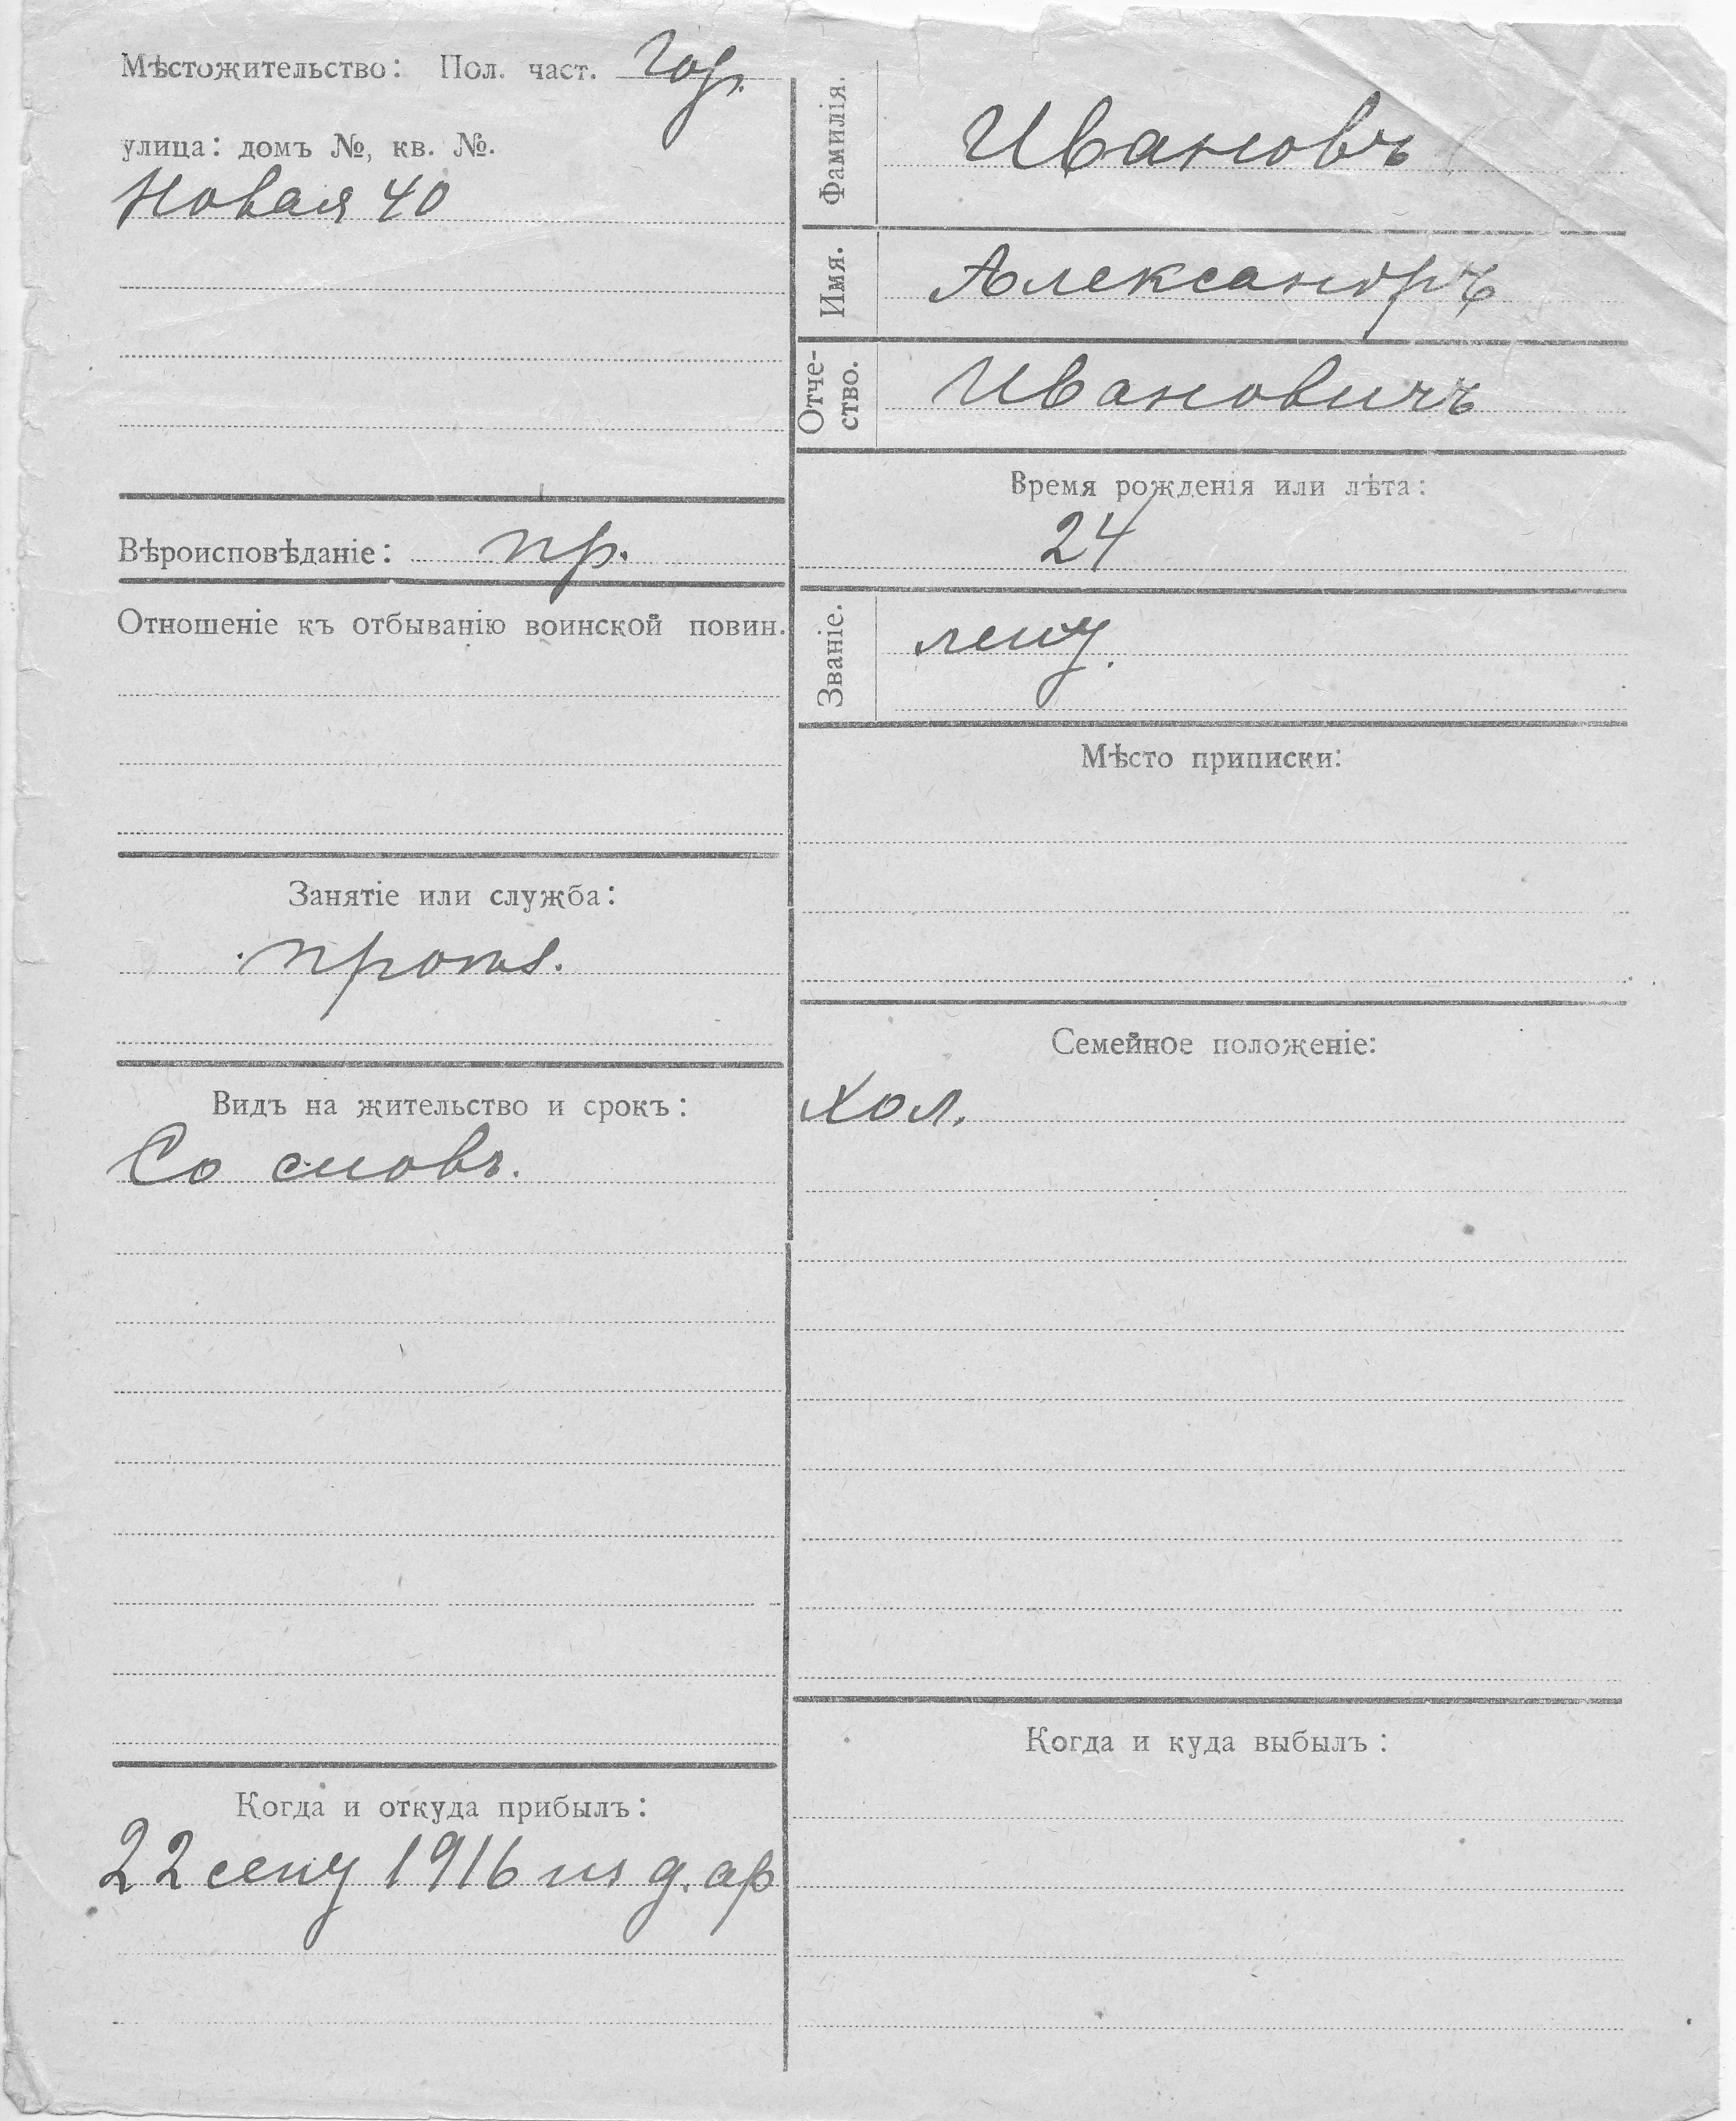 Мѣстожительство: Пол. част. Гор.
улица: домъ №, кв. №.
Новая 40
Вѣроисповѣданіе: пр.
Отношеніе къ отбыванію воинской повин.
Занятіе или служба:
Видъ на жительство и срокъ:
Со словъ.
Когда и откуда прибылъ:
22 сент 1916 из д. ар
Фамилія. Ивановъ
Имя. Александръ
Отче-
ство. Ивановичъ
Время рожденія или лѣта:
24
Званіе.
Мѣсто приписки:
Семейное положеніе:
Хол.
Когда и куда выбылъ: